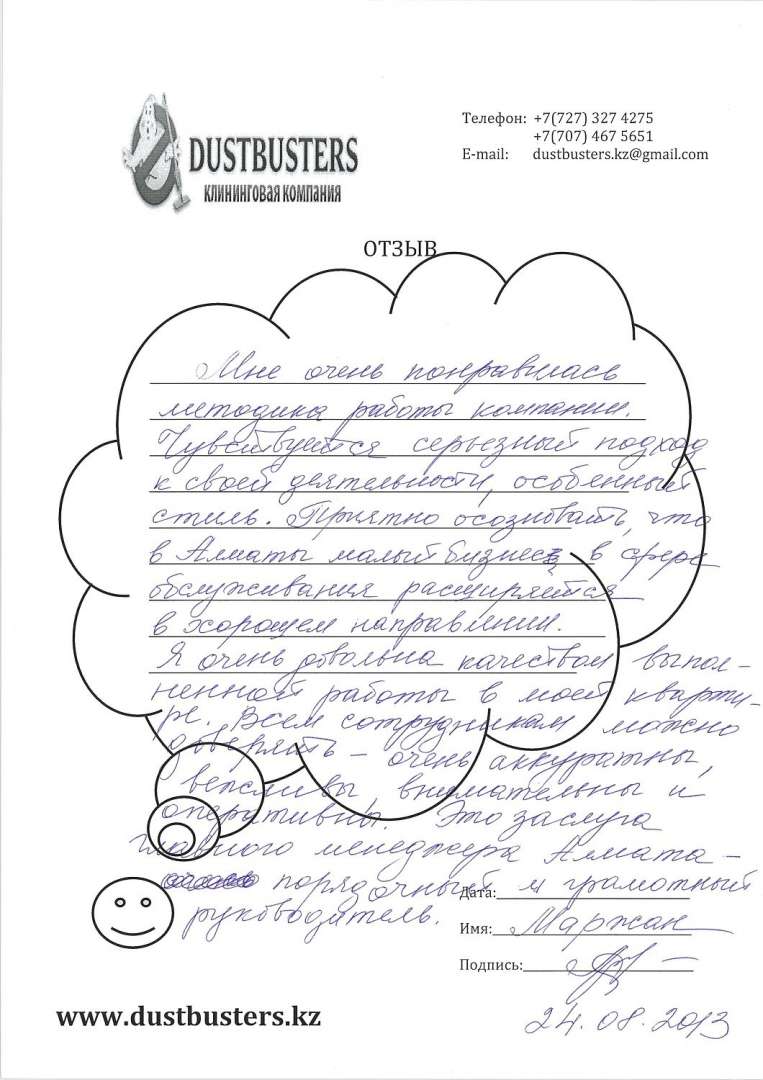 DUSTBUSTERS
КЛИНИНГОВАЯ КОМПАНИЯ
Телефон: +7(727) 327 4275
+7(707) 467 5651
E-mail: dustbusters.kz@gmail.com
ОТЗЫВ
Мне очень понравилась
методика работы компании.
Чувствуется серьезный подход
к своей деятельности, особенный
стиль. Приятно осознавать, что
в Алматы малый бизнес в сфере
обслуживания расширяется
в хорошем направлении.
Я очень довольна качеством выпол-
ненной работы в моей кварти-
ре. Всем сотрудникам можно
доверять – очень аккуратны,
вежливы внимательны и
оперативны. Это заслуга
главного менеджера Алмата –
порядочный и грамотный
руководитель.
Дата:
Имя: Маржан
Подпись:
24.08.2013
www.dustbusters.kz